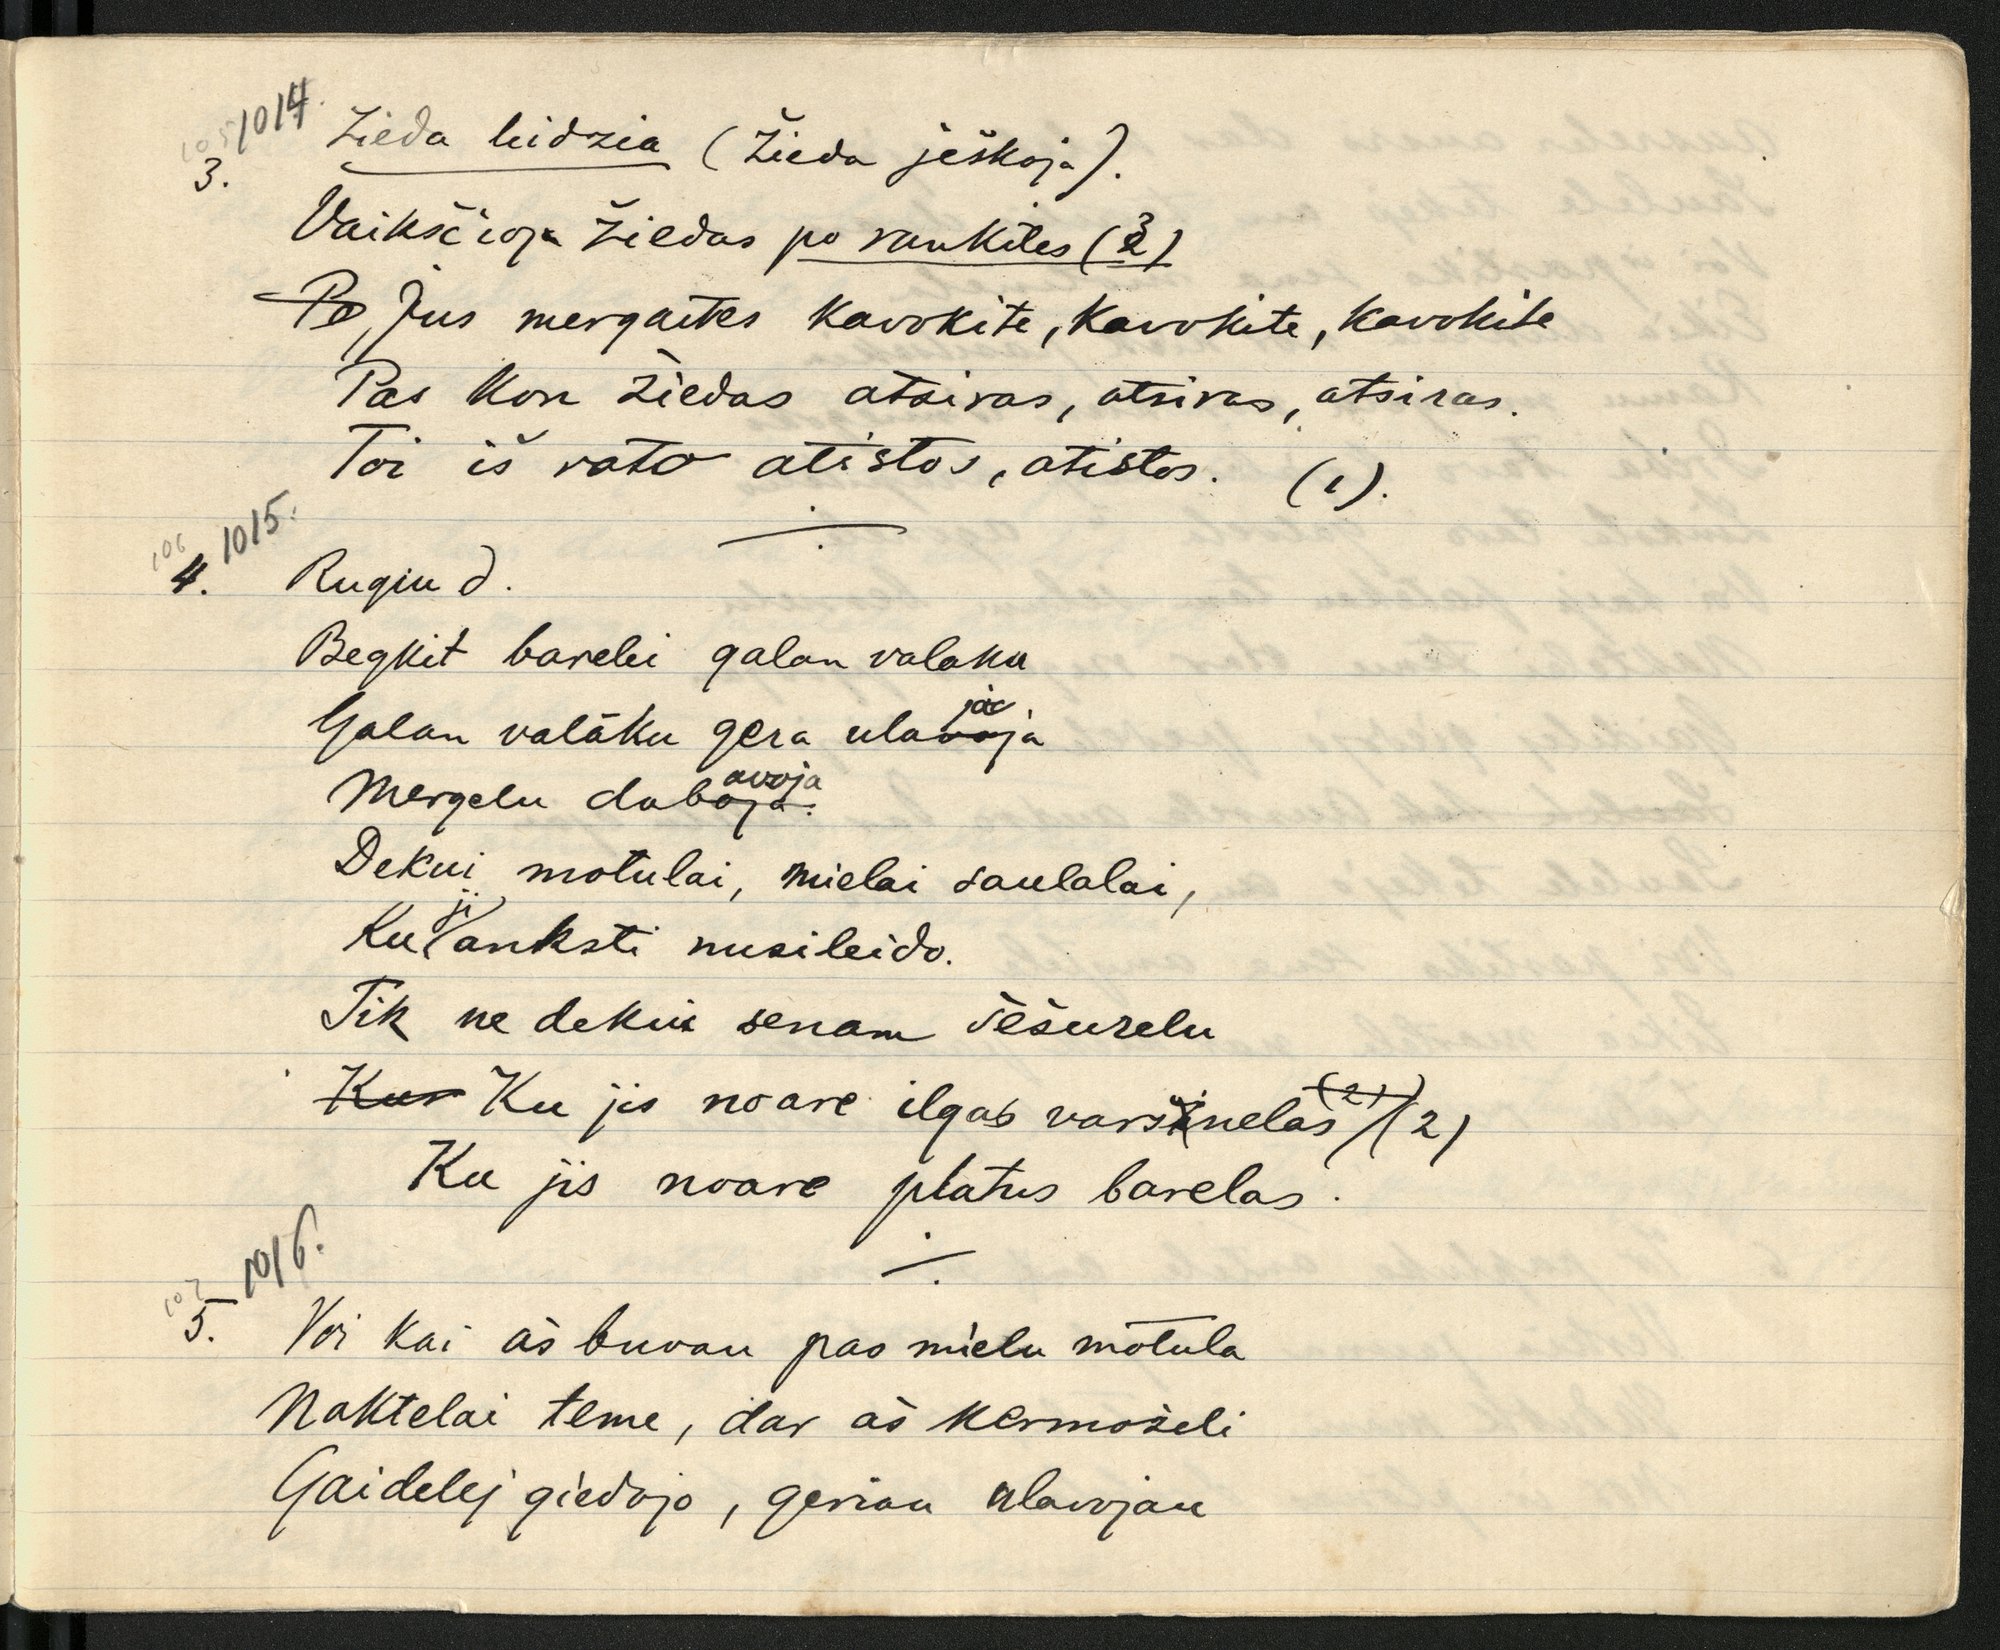 105 1014.
3. Žieda leidzia (Žieda ješkoja).
Vaikščioja Žiedas po rankites (3)
Po, Jus mergaites kavokite, kavokite, kavokite
Pas kon žiedas atsiras, atsiras, atsiras.
Toi iš rato atistos, atistos. (1).
106 1015.
4. Rugiu d.
Begkit barelei galan valaku
Galan valāku gera ulavoja
joc
Mergelu daboja.
avoja
Dekui motulai, mielai saulalai,
Ku ji anksti nusileido.
Tik ne dekui senam šešurelu
Kur Ku jis noare ilgas varsinelas (2) (2)
Ku jis noare platus barelas.
107 1016.
5. Voi kai aš buvau pas mielu mōtula
Naktelai teme, dar aš kermošeli
Gaidelej giedojo, geriau ulavojau